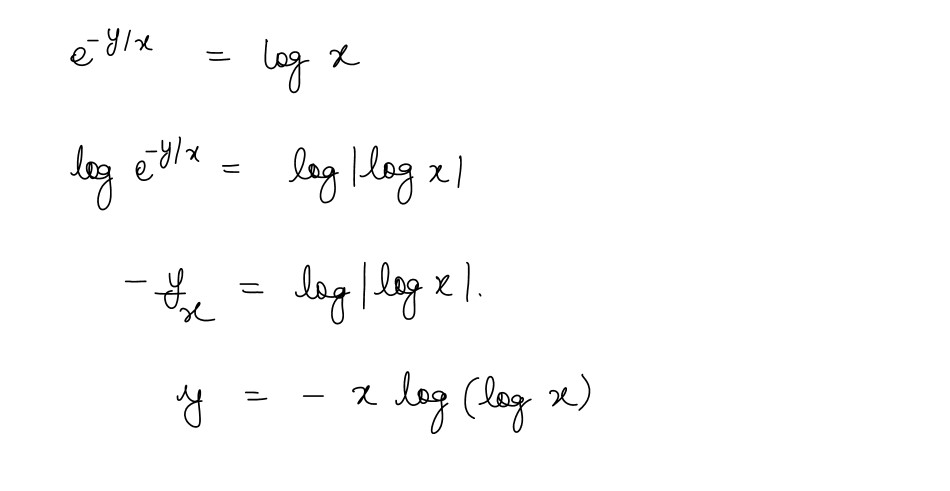 e^{-y/x} = log x
log e^{-y/x} = log|log x|
-y/x = log|log x|.
y = - x log(log x)